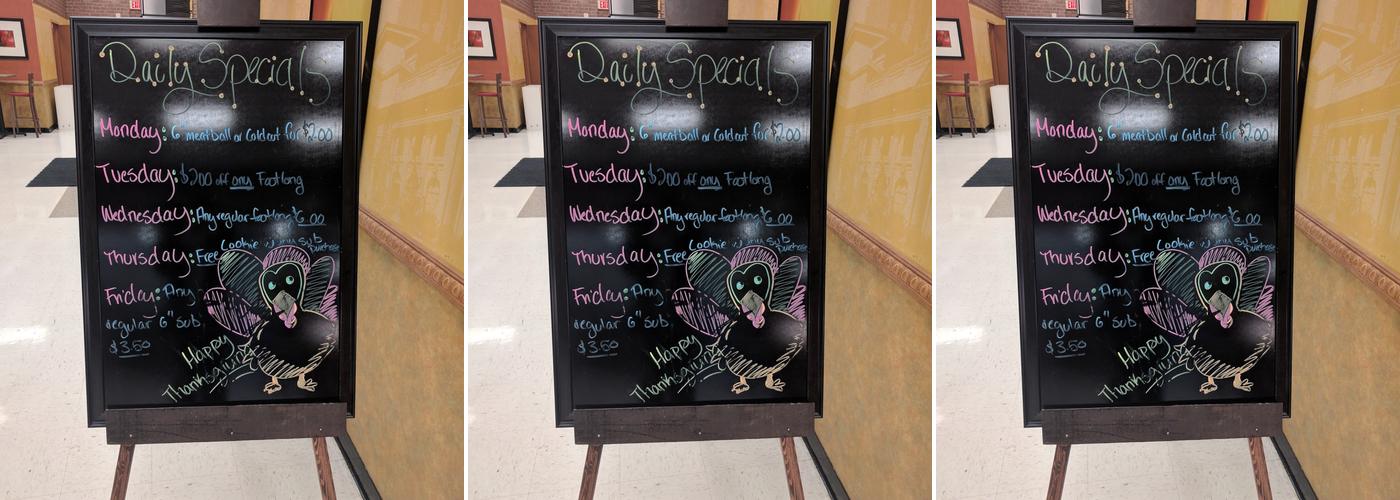 Daily Specials
Monday: 6" meatball or Coldcut for $2.00
Tuesday: $2.00 off any Footlong
Wednesday: Any regular footlong $6.00
Thursday: Free Cookie w/ any sub purchase
Friday: Any
regular 6" sub
$3.50
Happy
Thanksgiving
Daily Specials
Monday: 6" meatball or Coldcut for $2.00
Tuesday: $2.00 off any Footlong
Wednesday: Any regular footlong $6.00
Thursday: Free Cookie w/ any sub purchase
Friday: Any
regular 6" sub
$3.50
Happy
Thanksgiving
Daily Specials
Monday: 6" meatball or Coldcut for $2.00
Tuesday: $2.00 off any Footlong
Wednesday: Any regular footlong $6.00
Thursday: Free Cookie w/ any sub purchase
Friday: Any
regular 6" sub
$3.50
Happy
Thanksgiving